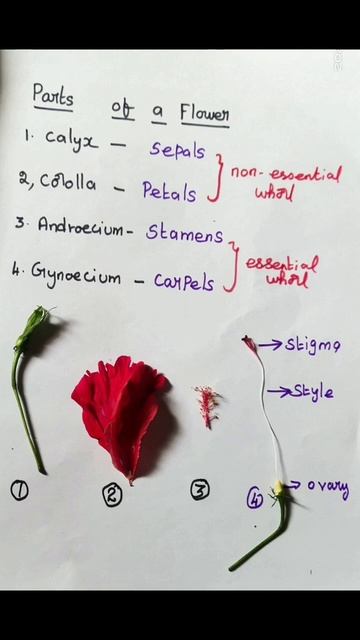 Parts of a Flower
1. Calyx – Sepals
non-essential
2, Corolla – Petals
whorl
3. Androecium – Stamens
essential
4. Gynoecium – Carpels
whorl
→ Stigma
→ Style
→ Ovary
1
2
3
4